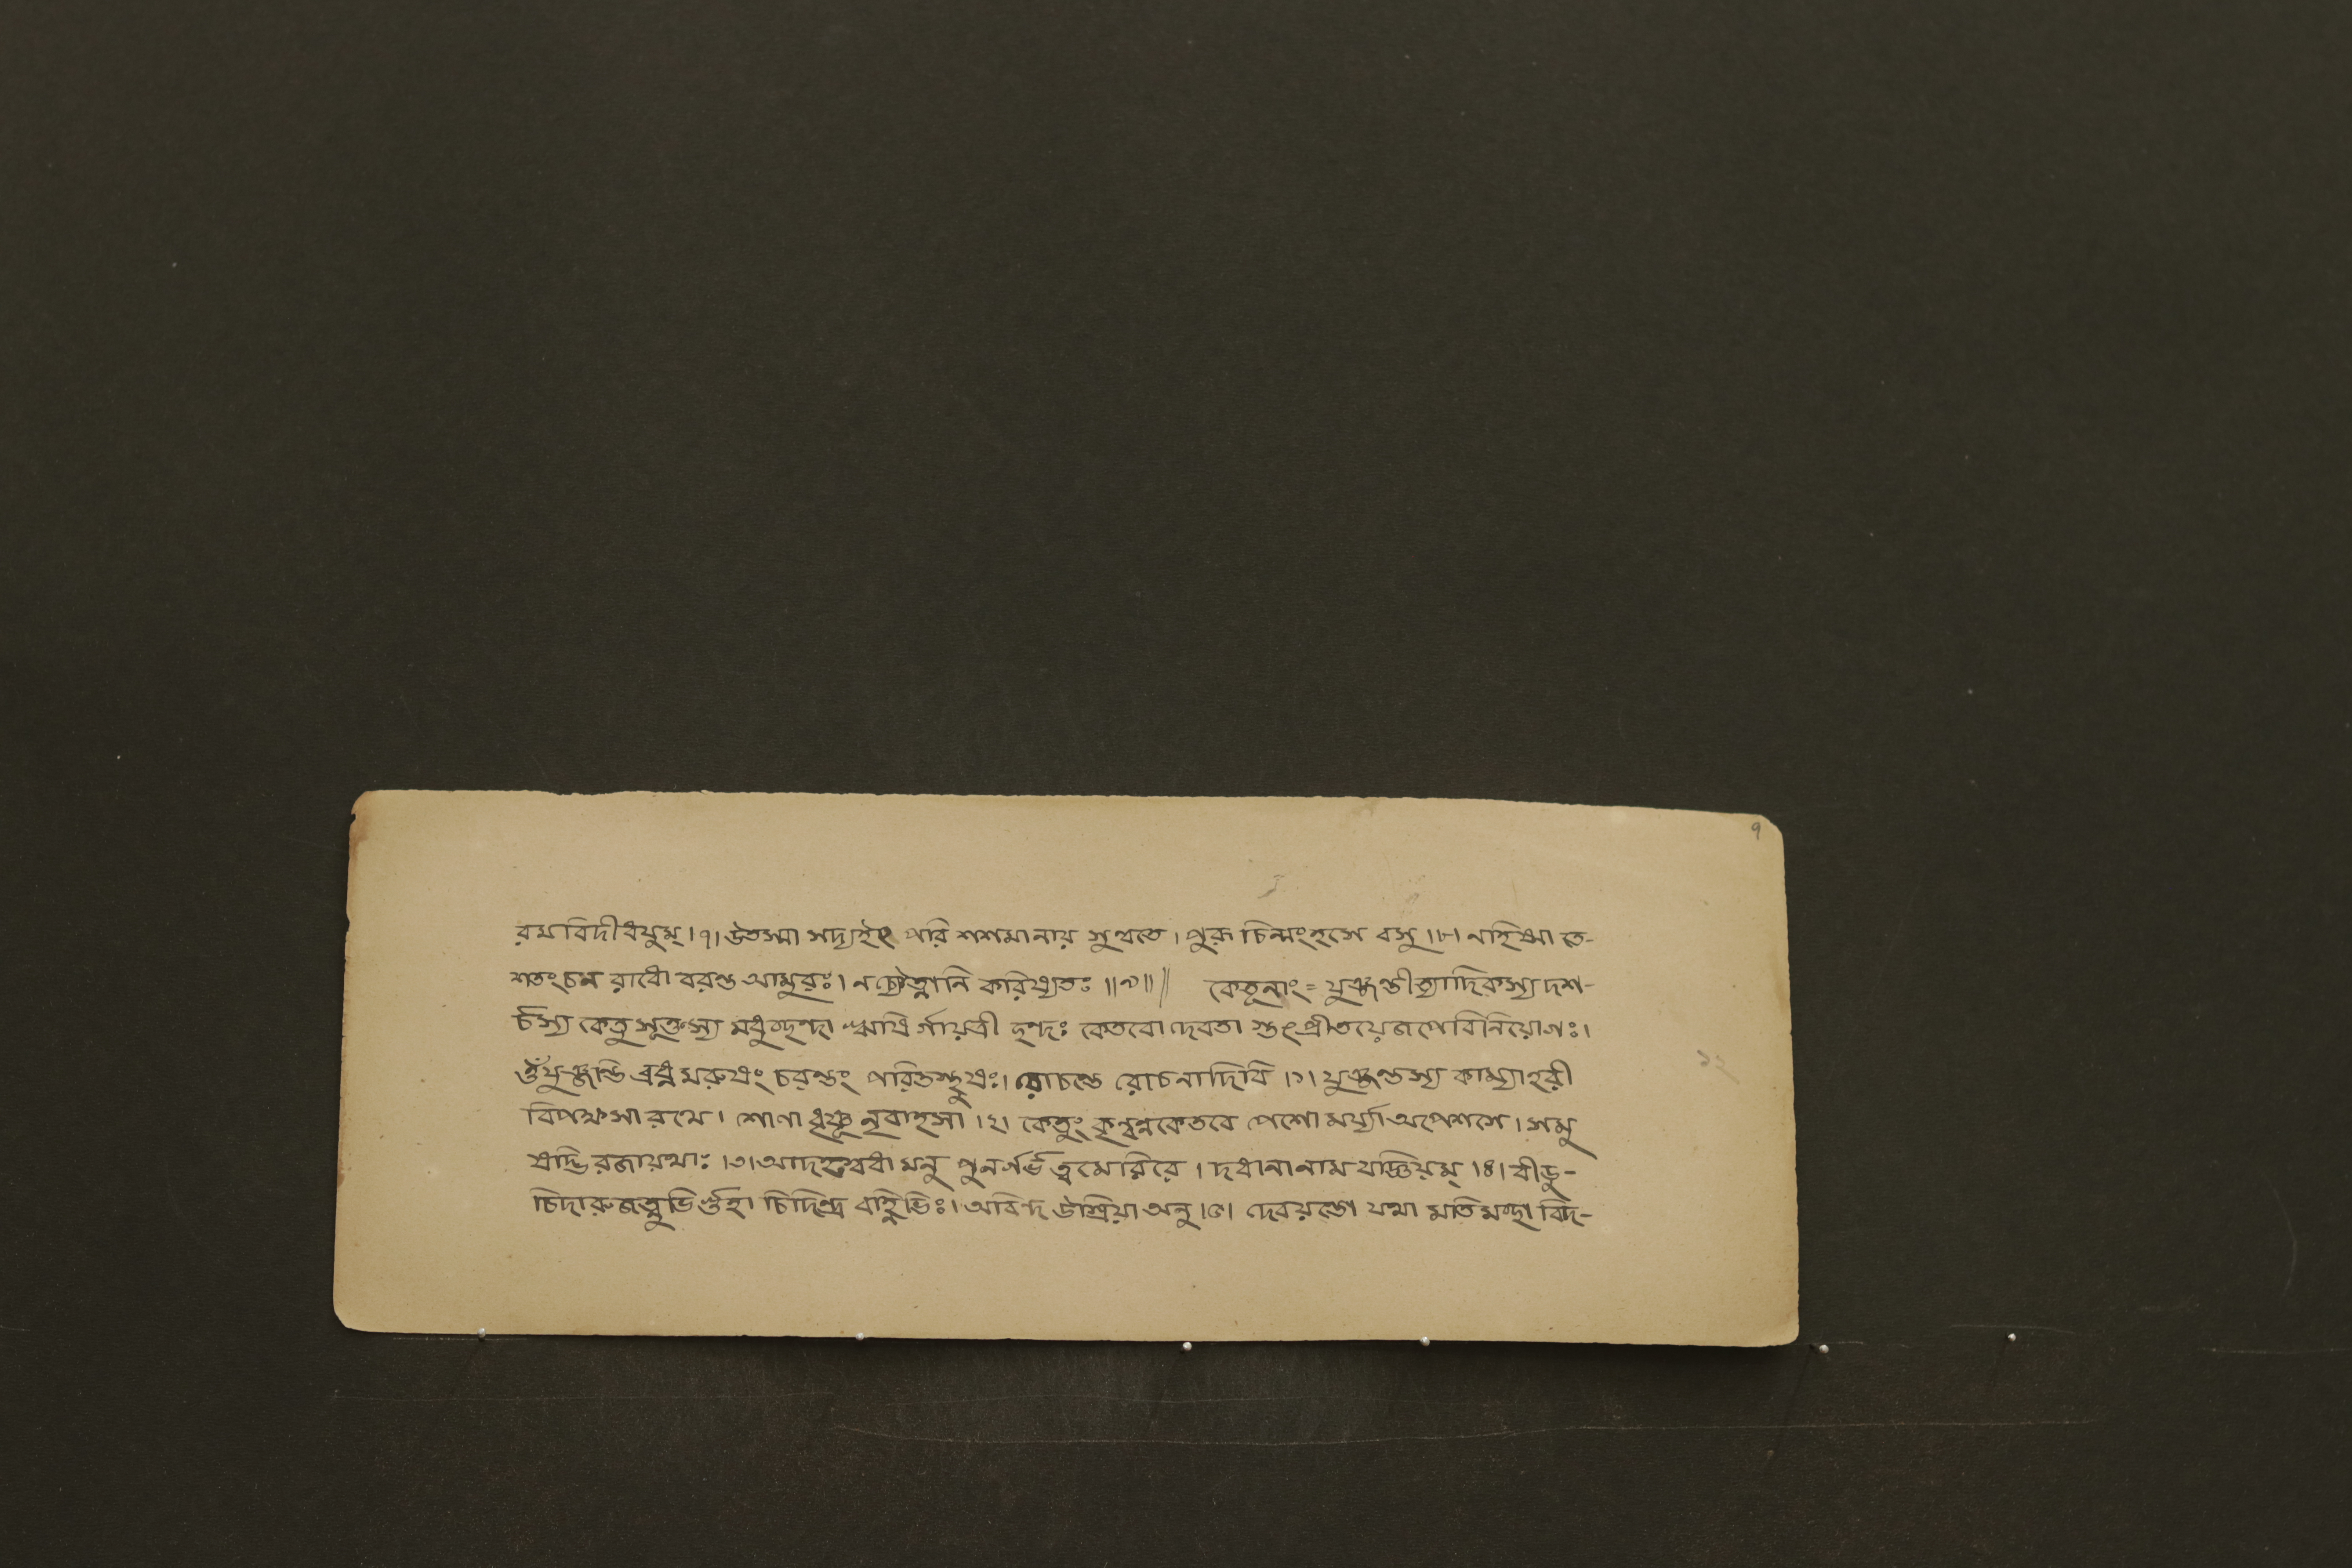 ৭
রমবিদীধয়ুম্।৭। উতস্মা সদ্যইৎ পরি শশমানায় সুন্বতে। পুরূ চিন্মংহসে বসু।৮। নহিষ্মা তে-
শতংচন রাধো বরন্ত আমুরঃ। ন চ্যৌত্নানি করিষ্যতঃ॥৯॥॥ কেতূনাং= যুঞ্জন্তীত্যাদিকস্য দশ-
র্চস্য কেতু সূক্তস্য মধুচ্ছন্দা ঋষি র্গায়ত্রী ছন্দঃ কেতবো দেবতা স্তৎপ্রীতয়ে জপে বিনিয়োগঃ।
ওঁ যুঞ্জন্তি ব্রধ্ন মরুষং চরন্তং পরিতস্থুষঃ। রোচন্তে রোচনাদিবি।১। যুঞ্জন্তস্য কাম্যাহরী
বিপক্ষসা রথে। শোণা ধৃষ্ণূ নৃবাহসা।২। কেতুং কৃন্বন্নকেতবে পেশো মর্য্যা অপেশসে। সমু
ষদ্ভি রজায়থাঃ।৩। আদহস্বধা মনু পুনর্গর্ভ ত্ব মেরিরে। দধানা নাম যজ্ঞিয়ম্।৪। বীড়ু-
চিদারুজত্নুভি র্গুহা চিদিন্দ্র বহ্নিভিঃ। অবিন্দ উস্রিয়া অনু।৫। দেবয়ন্তো যথা মতি মচ্ছা বিদ-
১২